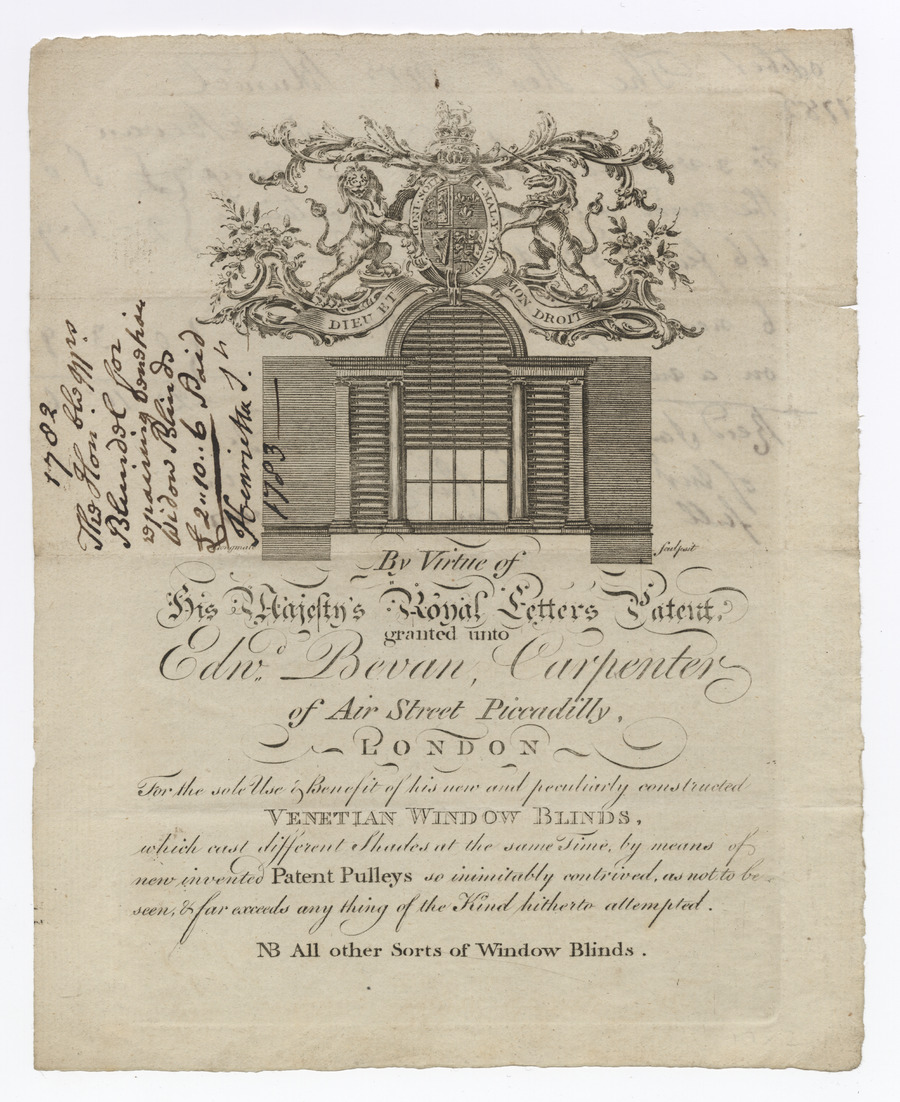 HONI SOIT QUI MAL Y PENSE
DIEU ET MON DROIT
sculpsit
By Virtue of
His Majesty's Royal Letters Patent,
granted unto
Edwd. Bevan, Carpenter
of Air Street Piccadilly,
LONDON
For the sole Use & Benefit of his new and peculiarly constructed
VENETIAN WINDOW BLINDS,
which cast different Shades at the same Time, by means of
new invented Patent Pulleys so inimitably contrived, as not to be
seen, & far exceeds any thing of the Kind hitherto attempted.
NB All other Sorts of Window Blinds.
1782
The Hon
Blundel for
repairing Venetian
Widow Blinds
£2"10..6 Paid
Henrietta S.
1783